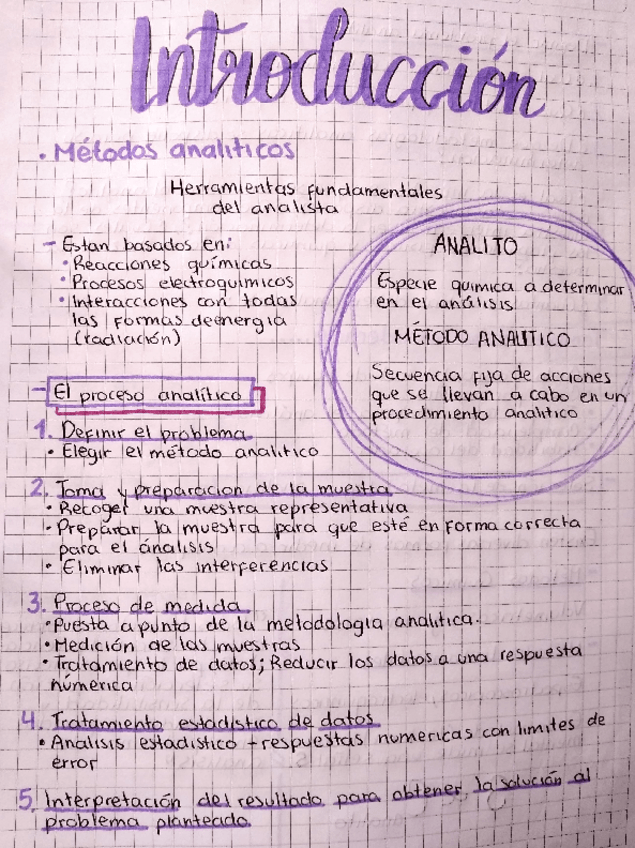 Introducción
• Métodos analíticos
Herramientas fundamentales
del analista
- Estan basados en:
• Reacciones químicas
• Procesos electroquimicos
• Interacciones con todas
las formas de energia
(radiación)
ANALITO
Especie quimica a determinar
en el análisis.
MÉTODO ANALITICO
Secuencia fija de acciones
que se llevan a cabo en un
procedimiento analitico
- El proceso analítico
1. Definir el problema
• Elegir el método analitico
2. Toma y preparacion de la muestra
• Recoger una muestra representativa
• Preparar la muestra para que esté en forma correcta
para el ánalisis
• Eliminar las interferencias
3. Proceso de medida
• Puesta a punto de la metodologia analitica.
• Medición de las muestras
• Tratamiento de datos; Reducir los datos a una respuesta
númerica
4. Tratamiento estadistico de datos
• Analisis estadistico → respuestas numericas con limites de
error
5. Interpretación del resultado para obtener la solución al
problema planteado